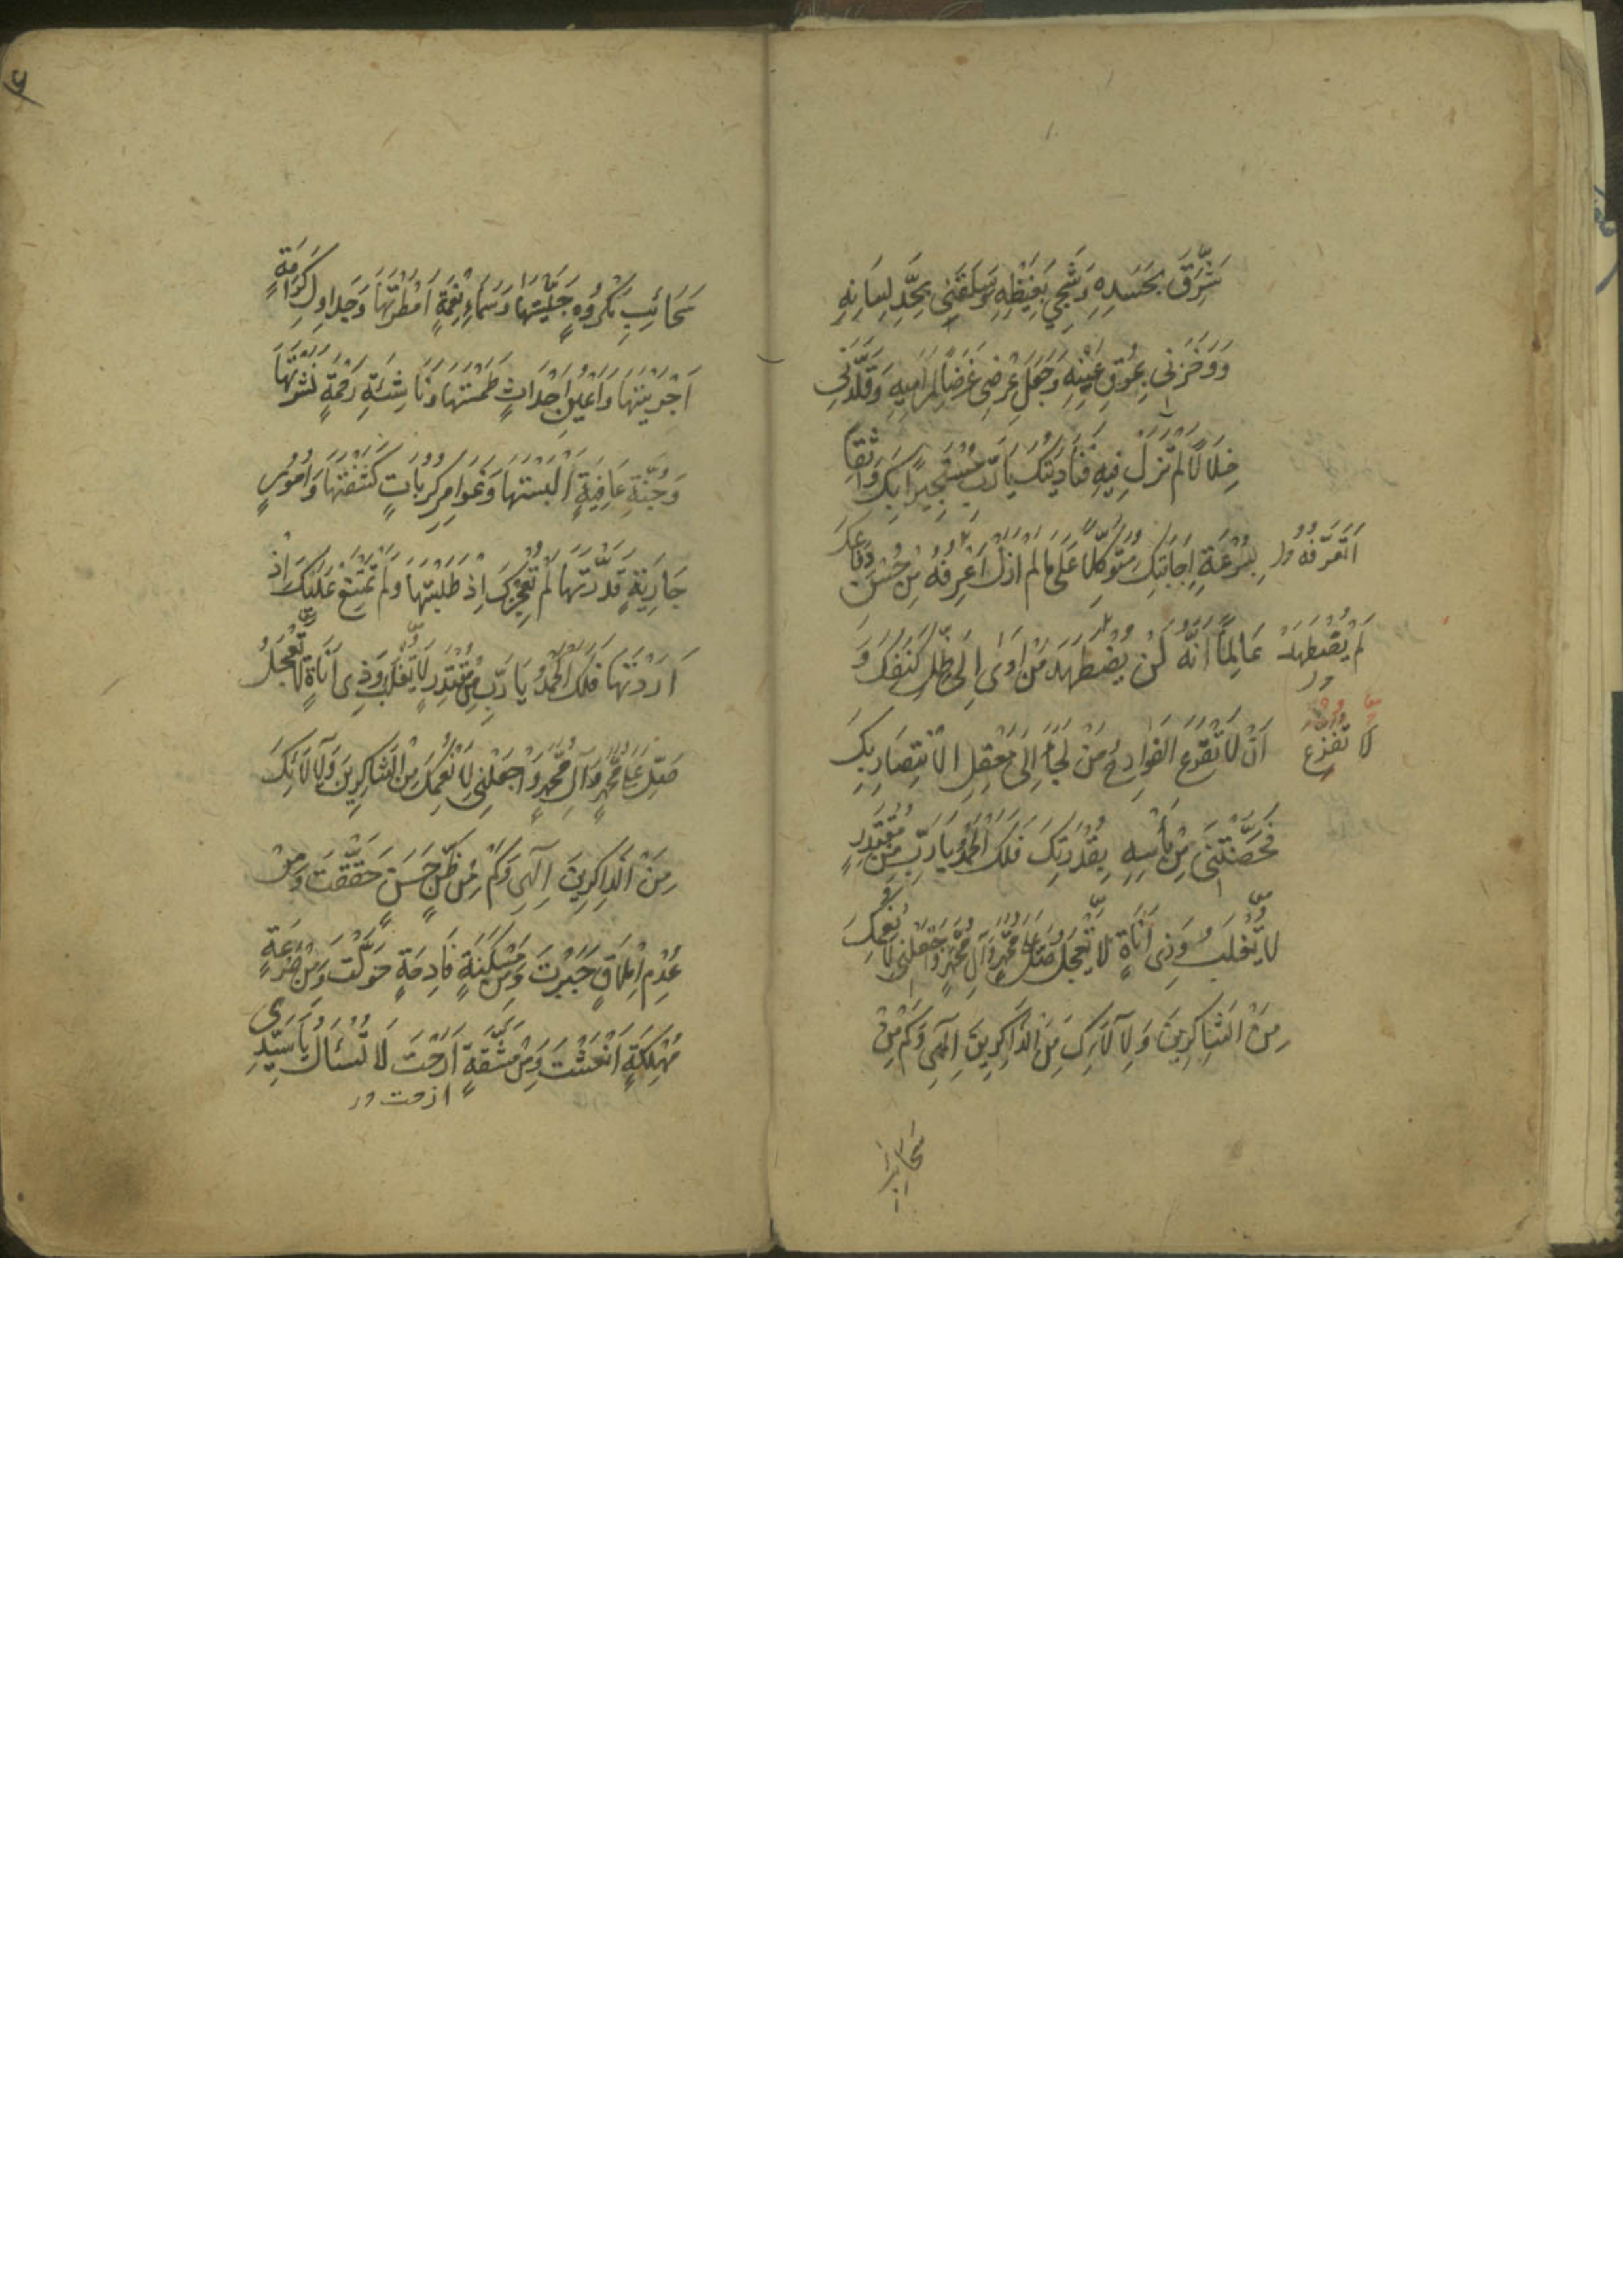 شَرِقَ بِحَسَدِهِ وَشَجِيَ بِغَيْظِهِ وَسَلَقَنِي بِحَدِّ لِسَانِهِ
وَوَخَزَنِي بِمُوقِ عَيْنِهِ وَجَعَلَ عِرْضِي غَرَضًا لِمَرَامِيهِ وَقَلَّدَنِي
خِلَالًا لَمْ تَزَلْ فِيهِ فَنَادَيْتُكَ يَا رَبِّ مُسْتَجِيرًا بِكَ وَاثِقًا
بِسُرْعَةِ إِجَابَتِكَ مُتَوَكِّلًا عَلَى مَا لَمْ أَزَلْ أَعْرِفُهُ مِنْ حُسْنِ دِفَاعِكَ
أَتَعَرَّفُهُ
عَالِمًا أَنَّهُ لَنْ يُضْطَهَدَ مَنْ أَوَى إِلَى ظِلِّ كَنَفِكَ وَ
لَمْ يُضْطَهَدْ
أَنْ لَا تَقْرَعَ الْفَوَادِحُ مَنْ لَجَأَ إِلَى مَعْقِلِ الِانْتِصَارِ بِكَ
لَا تَفْزَعُ
فَحَصَّنْتَنِي مِنْ بَأْسِهِ بِقُدْرَتِكَ فَلَكَ الْحَمْدُ يَا رَبِّ مِنْ مُقْتَدِرٍ
لَا يُغْلَبُ وَذِي أَنَاةٍ لَا يَعْجَلُ صَلِّ عَلَى مُحَمَّدٍ وَآلِ مُحَمَّدٍ وَاجْعَلْنِي لِأَنْعُمِكَ
مِنَ الشَّاكِرِينَ وَلِآلَائِكَ مِنَ الذَّاكِرِينَ إِلَهِي وَكَمْ مِنْ
سَحَائِبِ
سَحَائِبِ مَكْرُوهٍ جَلَّيْتَهَا وَسَمَاءِ نِعْمَةٍ أَمْطَرْتَهَا وَجَدَاوِلِ كَرَامَةٍ
أَجْرَيْتَهَا وَأَعْيُنِ أَحْدَاثٍ طَمَسْتَهَا وَنَاشِئَةِ رَحْمَةٍ نَشَرْتَهَا
وَجُنَّةِ عَافِيَةٍ أَلْبَسْتَهَا وَغَوَامِرِ كُرُبَاتٍ كَشَفْتَهَا وَأُمُورٍ
جَارِيَةٍ قَدَّرْتَهَا لَمْ تُعْجِزْكَ إِذْ طَلَبْتَهَا وَلَمْ تَمْتَنِعْ عَلَيْكَ إِذْ
أَرَدْتَهَا فَلَكَ الْحَمْدُ يَا رَبِّ مِنْ مُقْتَدِرٍ لَا يُغْلَبُ وَذِي أَنَاةٍ لَا يَعْجَلُ
صَلِّ عَلَى مُحَمَّدٍ وَآلِ مُحَمَّدٍ وَاجْعَلْنِي لِأَنْعُمِكَ مِنَ الشَّاكِرِينَ وَلِآلَائِكَ
مِنَ الذَّاكِرِينَ إِلَهِي وَكَمْ مِنْ ظَنٍّ حَسَنٍ حَقَّقْتَ وَمِنْ
عُدْمِ إِمْلَاقٍ جَبَرْتَ وَمِنْ مَسْكَنَةٍ فَادِحَةٍ حَوَّلْتَ وَمِنْ صَرْعَةٍ
مُهْلِكَةٍ أَنْعَشْتَ وَمِنْ مَشَقَّةٍ أَرَحْتَ لَا تُسْأَلُ يَا سَيِّدِي
ازحت